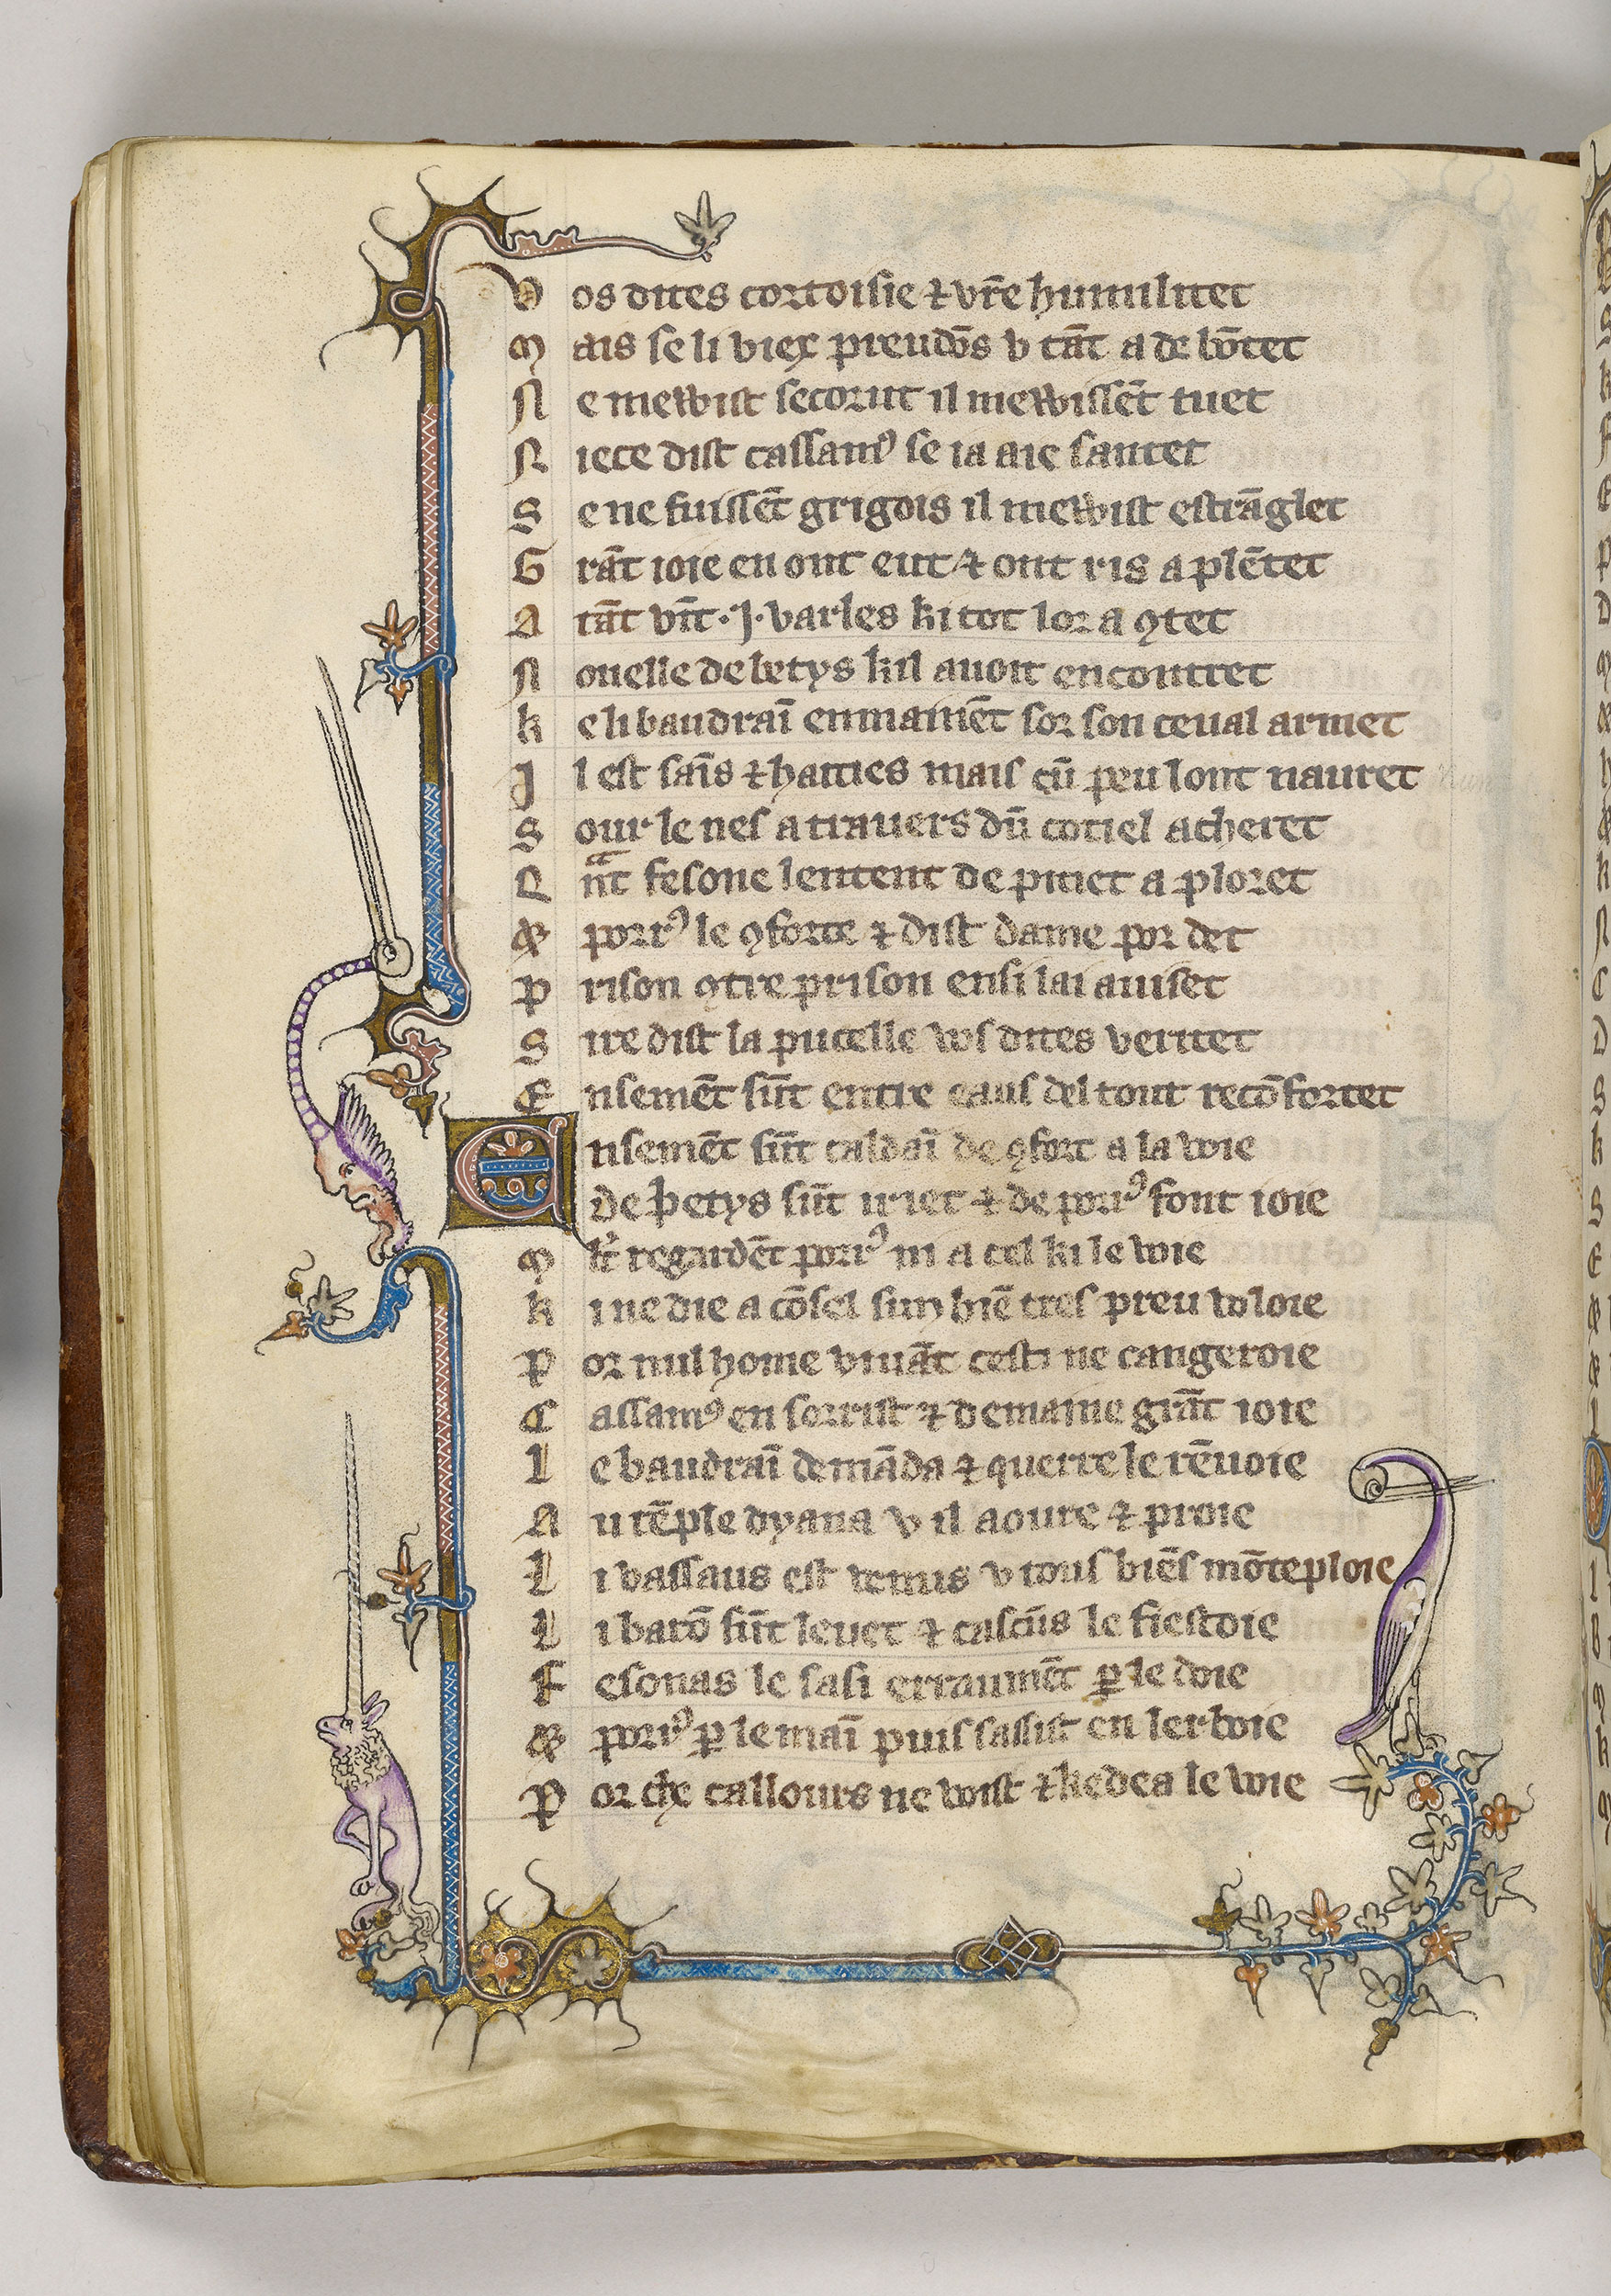 V os dites cortoisie ⁊ vr̄e humilitet
M ais se li viex preudōs v tāt a de bōtet
N e mewist secorut il mewissēt tuet
N iece dist cassamꝰ se ia aie santet
S e ne fuissēt grigois il mewist estrāglet
G rāt ioie en ont eut ⁊ ont ris a plētet
A tāt vīt .J. varles ki tot lor a ꝯtet
N ouelle de betys kil auoit encontret
k e li baudraī enmainēt sor son ceual armet
J l est sāīs ⁊ haities mais ēū peu lont nauret
S our le nes a trauers dū cotiel acheret
Q nᵃt fesone lentent de pitiet a ploret
⁊ porrꝰ le ꝯforte ⁊ dist dame por det
P rison ꝯtre prison ensi lai auiset
S ire dist la pucelle vos dites veritet
E nsemēt sūt entre eaus del tout recōfortet
E nsemēt sūt caldaī de ꝯfort a la voie
de betys sūt iriet ⁊ de porrꝰ font ioie
M lt̄ regardēt porrꝰ ni a cel ki le voie
k i ne die a cōsel sun biē tres preu voloie
P or nul home viuāt cesti ne cangeroie
C assamꝰ en sorrist ⁊ demaine grāt ioie
L e baudraī demāda ⁊ querre le rēuoie
A u tēple dyana v il aoure ⁊ proie
L i vassaus est venus v tous biēs mōteploie
L i barō sūt leuet ⁊ cascūs le fiestoie
F esonas le saisi erraumēt ꝑ le doie
⁊ porrꝰ ꝑ le maī puis sassist en lerboie
P or che callours ne voist ⁊ kedea le voie